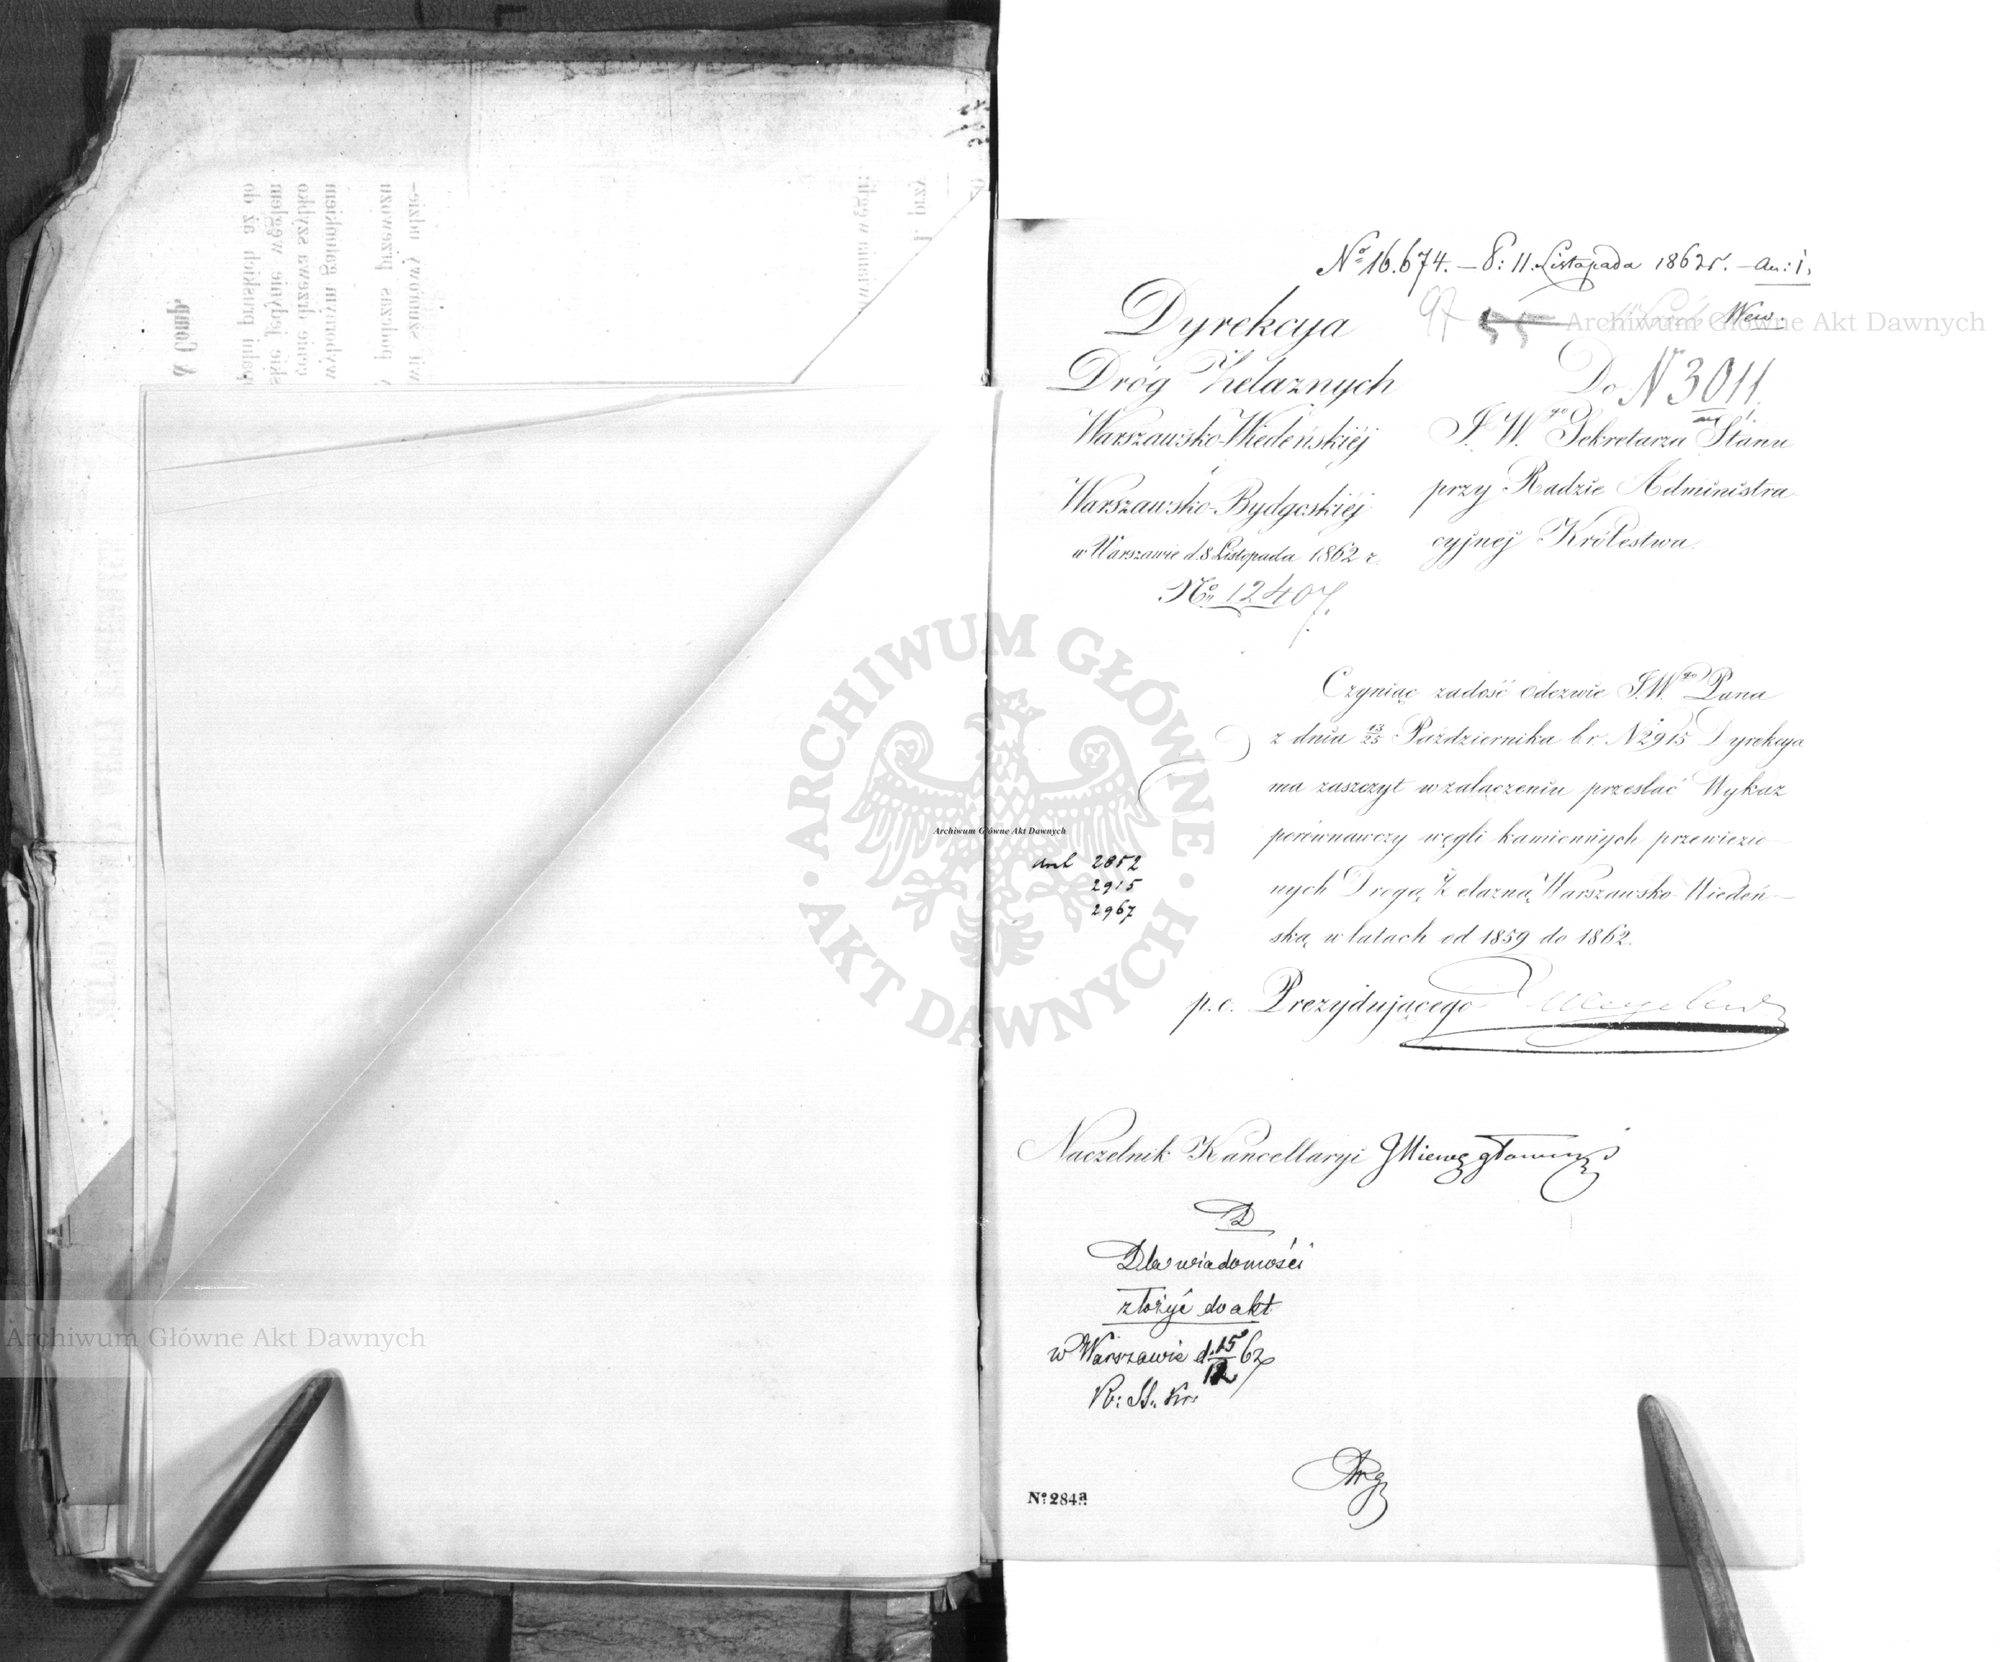 № 16.674. – 8: 11. Listopada 1862 r. – an: 1.
97
Wew.
Dyrekcya
Dróg Żelaznych
Warszawsko-Wiedeńskiéj
Warszawsko-Bydgoskiéj
w Warszawie d. 8 Listopada 1862 r.
№ 12407.
Do N 3011.
J. W.go Sekretarza Stanu
przy Radzie Administra
cyjnéj Królestwa.
Czyniąc zadość odezwie J.W.go Pana
z dnia 13/25 Października b.r. N 2915 Dyrekcya
ma zaszczyt w załączeniu przesłać Wykaz
porównawczy węgli kamiennych przewiezio
nych Drogą Żelazną Warszawsko-Wiedeń-
ską w latach od 1859 do 1862.
2852
2915
2967
p.o. Prezydującego
Naczelnik Kancellaryi
D
Dla wiadomości
złożyć do akt
w Warszawie d. 15/12 62
№ 284a
Archiwum Główne Akt Dawnych
ARCHIWUM GŁÓWNE
AKT DAWNYCH
Archiwum Główne Akt Dawnych
Archiwum Główne Akt Dawnych